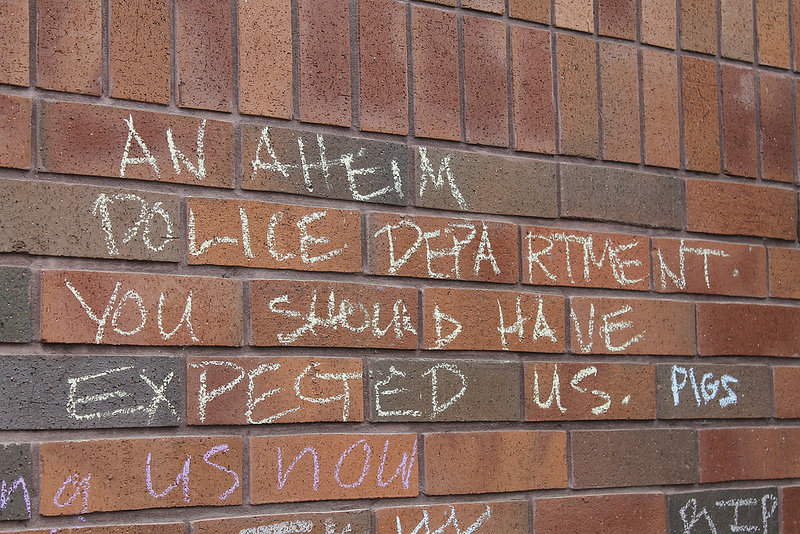 AN AHEIM
POLICE DEPARTMENT.
YOU SHOULD HAVE
EXPECTED US. PIGS
us now
RIP